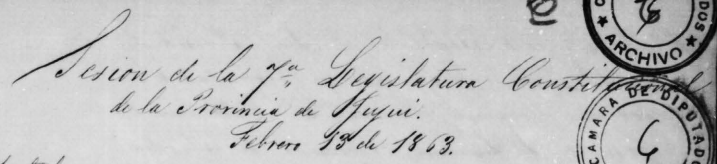 Sesion de la 7ª Legislatura Constitucional
de la Provincia de Jujui.
Febrero 13 de 1863.
ARCHIVO
CAMARA DE DIPUTADO